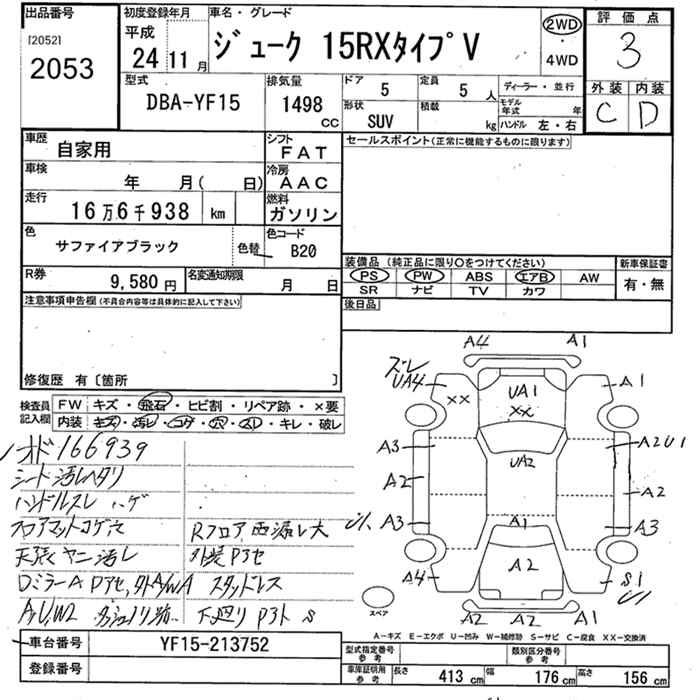 出品番号
[2052]
2053
初度登録年月
平成
24 11 月
車名・グレード
ジューク 15RXタイプV
2WD
・
4WD
評価点
3
外装 内装
C D
型式
DBA-YF15
排気量
1498
CC
ドア
5
定員
5 人
形状
SUV
積載
kg
ディーラー・並行
モデル年式 年
ハンドル 左・右
車歴
自家用
シフト
FAT
車検
年 月( 日)
冷房
AAC
走行
16万6千938 km
燃料
ガソリン
色
サファイアブラック
色替
色コード
B20
R券
9,580円
名変通知期限
月 日
セールスポイント(正常に機能するものに限ります)
装備品(純正品に限り〇をつけてください)
PS PW ABS エアB AW
SR ナビ TV カワ
新車保証書
有・無
後日品
注意事項申告欄(不具合内容等は具体的に記入して下さい)
修復歴 有〔箇所 〕
検査員記入欄
FW キズ・飛石・ヒビ割・リペア跡・×要
内装 キズ・汚レ・コゲ・穴・スレ・キレ・破レ
166939
シート汚レヘタリ
ハンドルスレ ハゲ
フロアマットコゲ穴
Rフロア 雨漏レ大
天張ヤニ汚レ
外装Pアセ
DミラーA Dアセ, 外A/WA スタッドレス
下廻リ Pアト S
A4
A1
ズレ
UA4
××
UA1
××
A1
A3
UA2
A2U1
A2
A2
A3
A1
A3
A4
A2
S1
A2
A2
A1
スペア
A-キズ E-エクボ U-凹み W-補修跡 S-サビ C-腐食 XX-交換済
車台番号
YF15-213752
登録番号
型式指定番号
参考
類別区分番号
参考
車庫証明用
参考
長さ 413 cm 幅 176 cm 高さ 156 cm